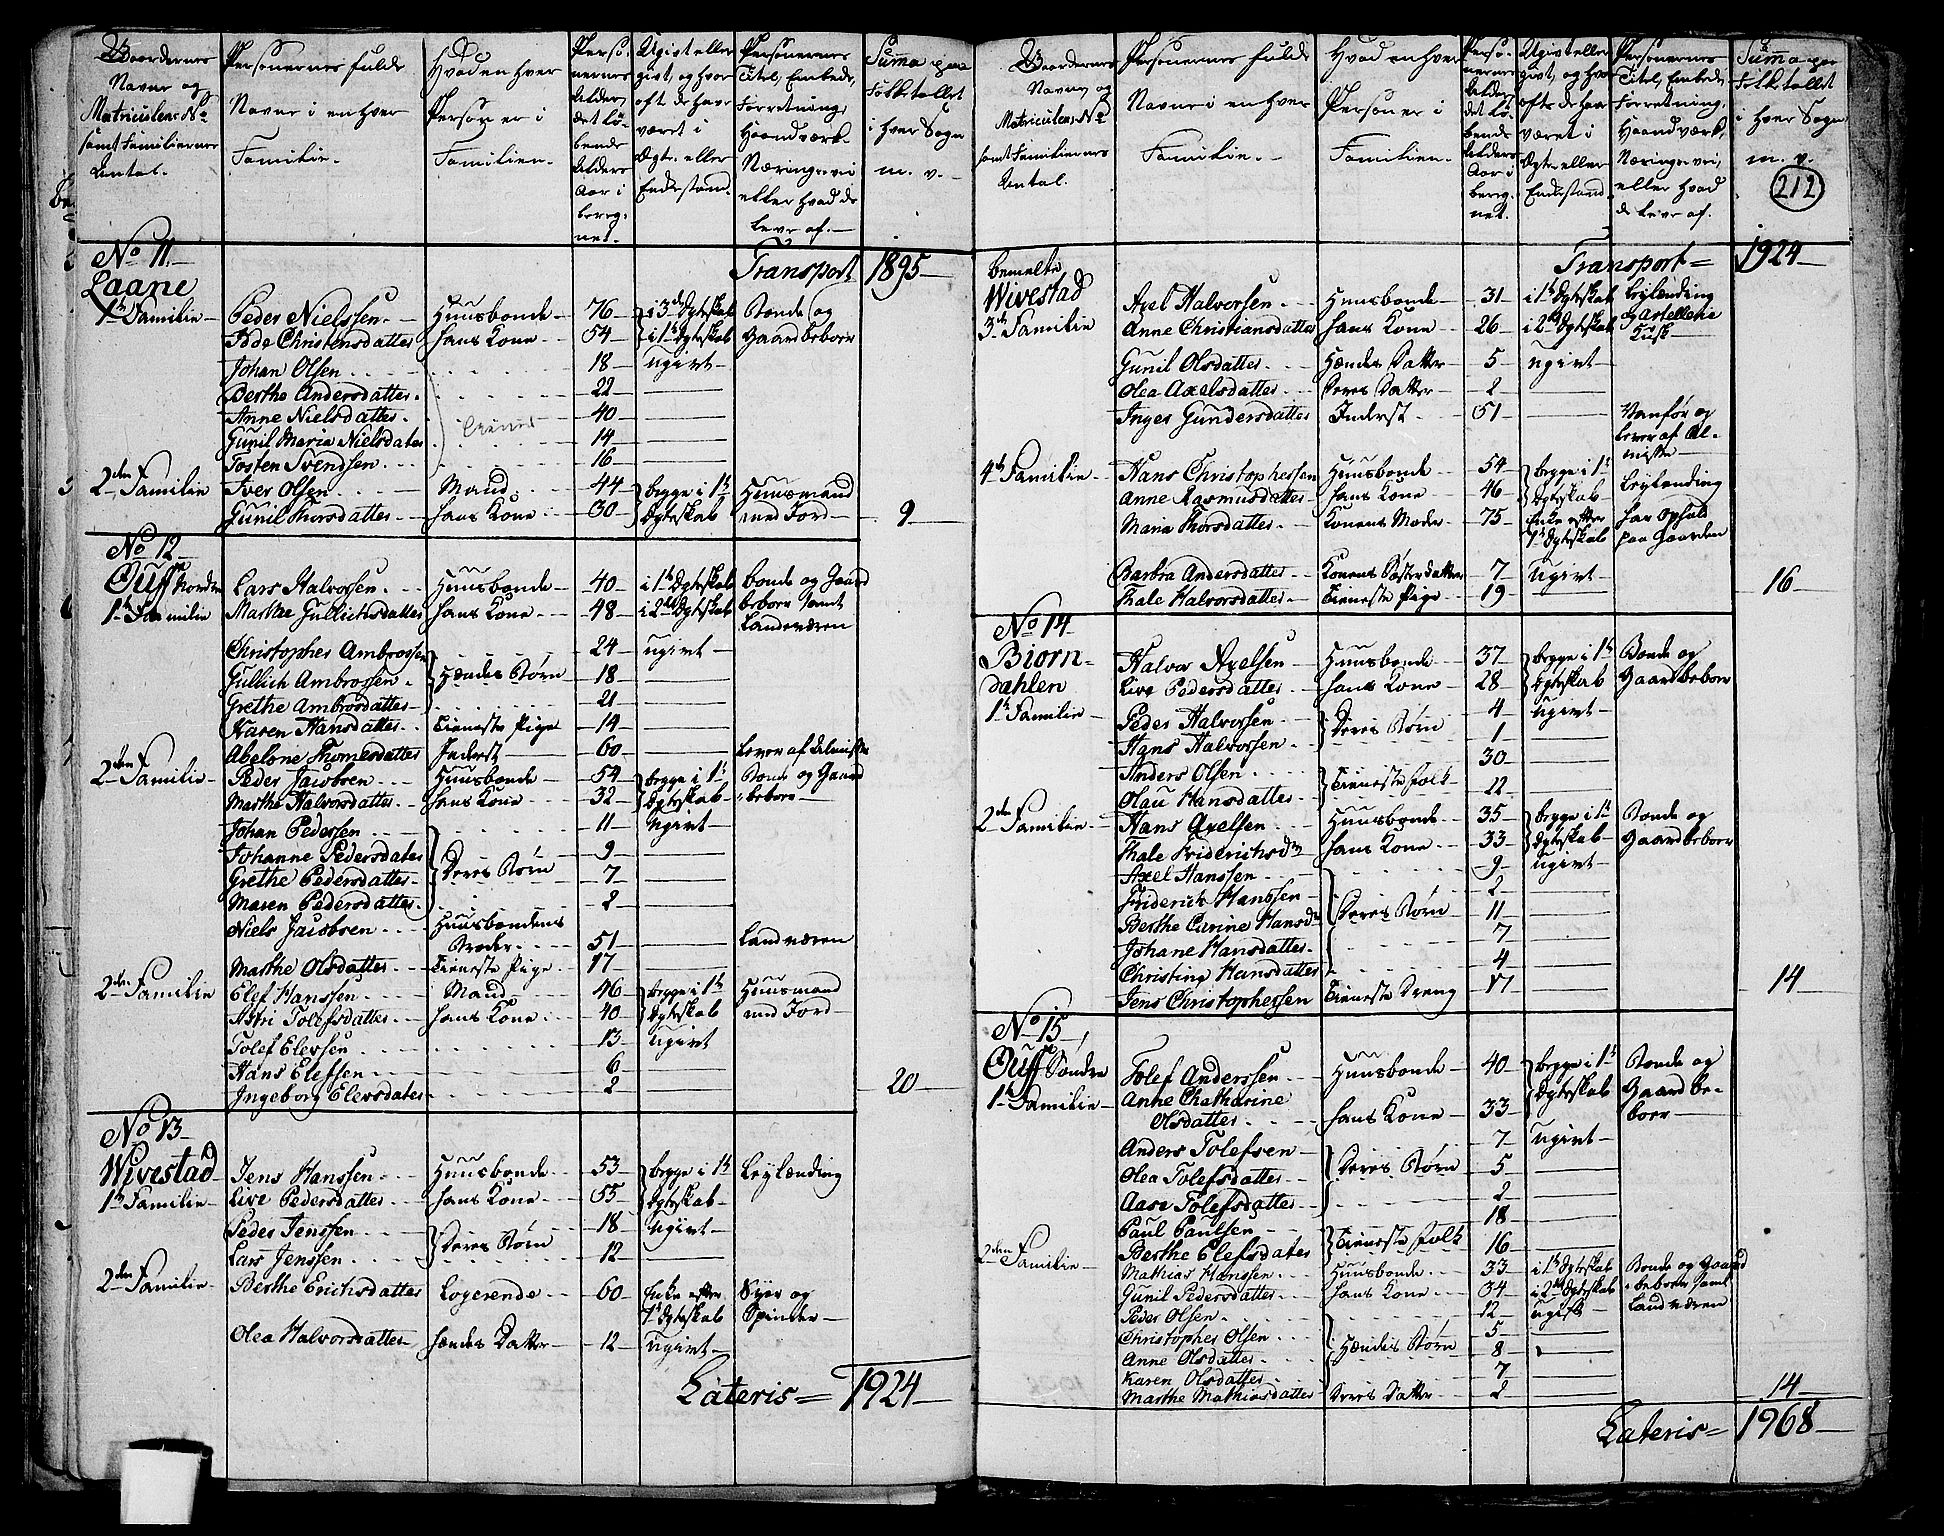 Gaardernes Navne og Matriculens No samt Familiernes Antal.
Personernes fulde Navne i en hver Familie.
Hvad en hver Person er i Familien.
Personernes Alder, det løbende Alders Aar iberegnet.
Ugivt eller givt, og hvor ofte de have været i Ægte- eller Enkestand.
Personernes Titel, Embede, Forretning, Haandværk, Næringsvei eller hvad de leve af.
Summa paa Folketallet i hver Sogn m. v.
No 11. Transport 1895
Laane
1ste Familie Peder Nielssen Huusbonde 76 i 3de Ægteskab Bonde og
Christensdatter hans Kone 54 i 1ste Ægteskab Gaardbeboer
Johan Olsen 18 ugivt
Berthe Andersdatter 22
Anne Nielsdatter 40
Gunil Maria Nielsdater 14
Tosten Svendsen 16
2den Familie Iver Olsen Mand 44 begge i 1ste Huusmand
Gunil Thorsdatter hans Kone 30 Ægteskab med Jord 9
No 12
Ouff Nordre Lars Halvorsen Huusbonde 40 i 1ste Ægteskab Bonde og Gaard
1ste Familie Marthe Gullichsdatter hans Kone 48 i 2det Ægteskab beboer samt Landeværen
Christopher Ambrossen 24 ugivt
Gullich Ambrossen Hendes Børn 18
Grethe Ambrosdatter 21
Karen Hansdatter Tieneste Pige 14
Abelone Thomesdatter Inderst 60 Lever af Almisse
2den Familie Peder Jacobsen Huusbonde 54 begge i 1ste Bonde og Gaard
Marthe Halvorsdatter hans Kone 32 Ægteskab beboer
Johan Pedersen 11 ugivt
Johanne Pedersdater 9
Grethe Pedersdatter Deres Børn 7
Maren Pedersdatter 2
Niels Jacobsen Huusbondens
Broder 51 Landværen
Marthe Olsdatter Tieneste Pige 17
2den Familie Elef Hanssen Mand 46 begge i 1ste Huusmand
Astri Tolefsdatter hans Kone 40 Ægteskab med Jord
Tolef Elevsen 13 ugivt
Hans Elefsen 6
Ingeborg Elevsdater 2 20
No 13
Wivestad Jens Hanssen Huusbonde 53 begge i 1ste Leylænding
1ste Familie Live Pedersdatter hans Kone 55 Ægteskab
Peder Jenssen 18 ugivt
Lars Jenssen Deres Børn 12
2den Familie Berthe Erichsdatter Logerende 60 Enke efter 1ste Ægteskab Syer og Spinder
Olea Halvorsdatter hendes Datter 12 ugivt
Lateris = 1924
Gaardernes Navne og Matriculens No samt Familiernes Antal.
Personernes fulde Navne i en hver Familie.
Hvad en hver Person er i Familien.
Personernes Alder, det løbende Alders Aar iberegnet.
Ugivt eller givt, og hvor ofte de have været i Ægte eller Enkestand
Personernes Titel, Embede, Forretning, Haandværk, Næringsvei, eller hvad de leve af.
Summa paa Folketallet i hver Sogn m. v.
212
bemelte Transport = 1924
Wivestad Axel Halvorsen Huusbonde 31 i 1ste Ægteskab Leylænding
3de Familie Anne Christiansdatter hans Kone 26 i 2det Ægteskab
Gunil Olsdatter Hendes Datter 5 ugivt
Olea Axelsdatter Deres Datter 2
Inger Gundersdatter Inderst 51 Vanfør og lever af Almisse
4de Familie Hans Christophessen Huusbonde 54 begge i 1ste Leylending
Anne Rasmusdatter hans Kone 46 Ægteskab
Maria Thorsdatter Konens Moder 75 Enke efter 1ste Ægteskab har Ophold paa Gaarden
Barbra Andersdatter Konens Søsterdatter 7 ugivt
Thale Halvorsdatter Tieneste Pige 19 16
No 14
Biørn- Halvor Axelsen Huusbonde 37 begge i 1ste Bonde og
dahlen Live Pedersdatter hans Kone 28 Ægteskab Gaardbeboer
1ste Familie Peder Halvorsen 4 ugivt
Hans Halvorssen Deres Børn 1
Anders Olsen 30
Olau Hansdatter Tieneste folk 22
2den Familie Hans Axelsen Huusbonde 35 begge i 1ste Bonde og
Thale Friderichsdr hans Kone 33 Ægteskab Gaardbeboer
Axel Hanssen 9 ugivt
Friderich Hanssen 2
Berthe Carine Hansdr Deres Børn 11
Johane Hansdatter 7
Christing Hansdatter 4
Jens Christophessen Tieneste Dreng 17 14
No 15
Ouff Søndre Tolef Anderssen Huusbonde 40 begge i 1ste Bonde og
1ste Familie Anne Chatharine
Olsdatter hans Kone 33 Ægteskab Gaardbeboer
Anders Tolefsen 7 ugivt
Olea Tolefsdatter Deres Børn 5
Aase Tolefsdatter 2
Paul Paulsen 18
Berthe Elefsdater Tieneste folk 16
2den Familie Mathias Hanssen Huusbonde 33 i 1ste Ægteskab Bonde og Gaard
Gunil Pedersdatter hans Kone 34 i 2det Ægteskab beboer samt
Peder Olsen 12 ugift Landværen
Christopher Olsen 5
Anne Olsdatter Hendes Børn 8
Karen Olsdatter 7
Marthe Mathiasdatter Deres Datter 2 14
Lateris = 1968